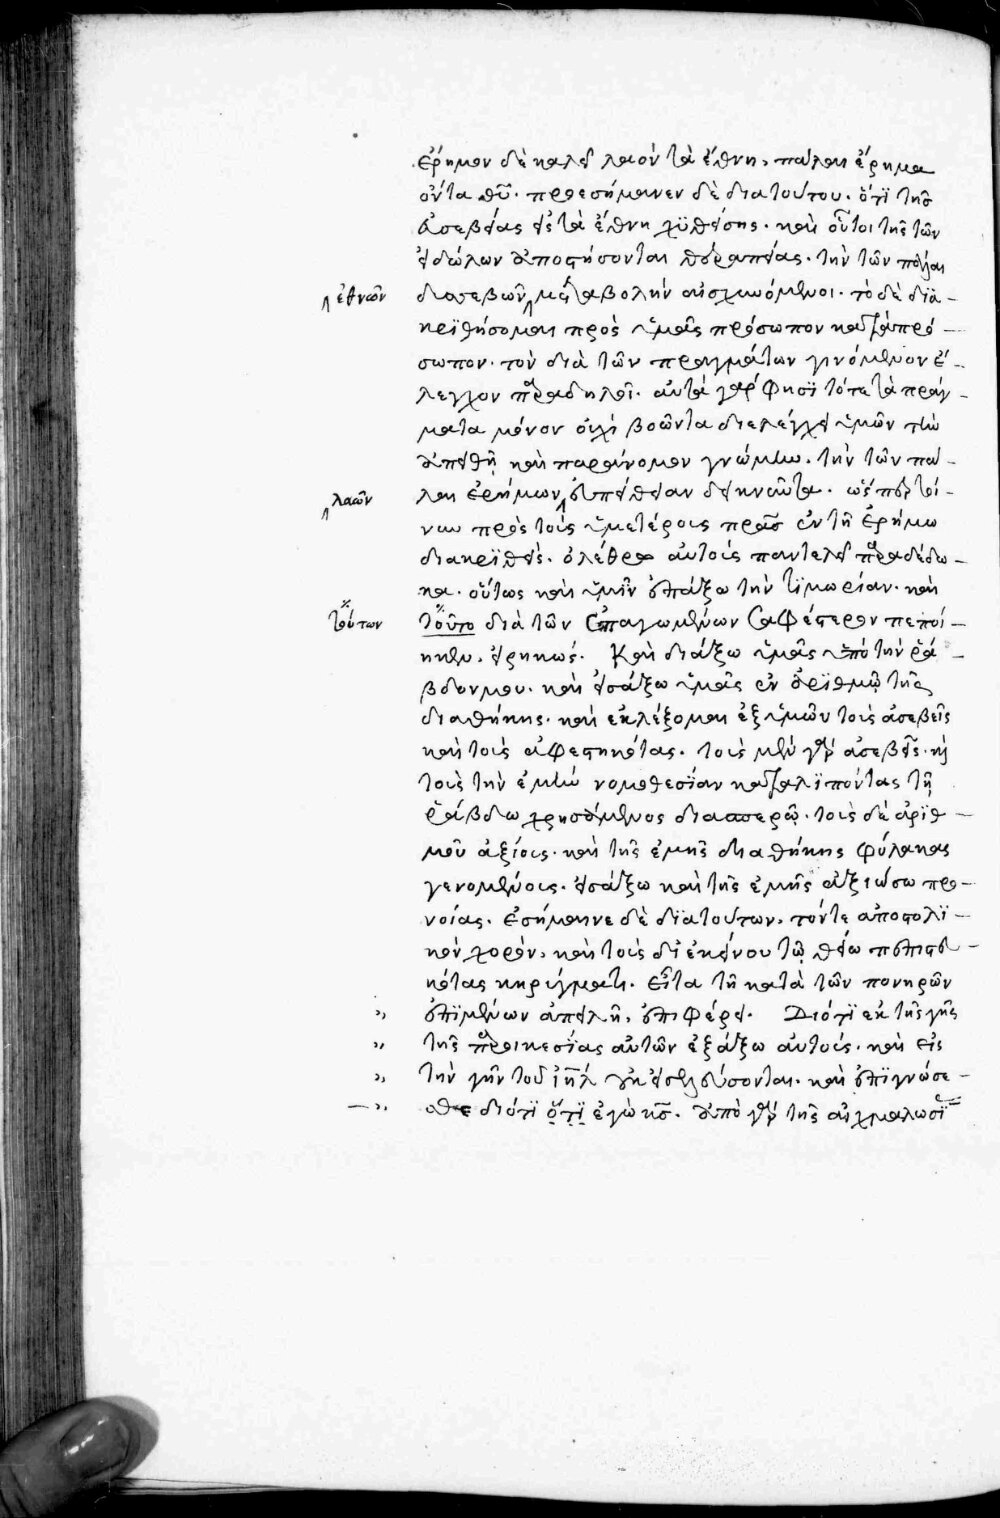 ἔρημον δὲ καλεῖ λαὸν τὰ ἔθνη, πάλαι ἔρημα
ὄντα θῦ. προεσήμαινεν δὲ διατούτου. ὅτϊ τῆς
ἀσεβείας εἰς τὰ ἔθνη χϋθείσης. καὶ οὗτοι τῆς τῶν
εἰδώλων ἀποστήσονται θεραπείας. τὴν τῶν πάλαι
δυσσεβῶν μεταβολὴν αἰσχυνόμενοι. τὸ δὲ δϊα-
⁁ ἐθνῶν
κρϊθήσομαι πρὸς ὑμᾶς πρόσωπον κατὰ πρό-
σωπον. τὸν διὰ τῶν πραγμάτων γινόμενον ἔ-
λεγχον παραδηλοῖ. αὐτὰ γάρ φησϊ τότε τὰ πράγ-
ματα μόνον οὐχὶ βοῶντα διελέγχει ὑμῶν τὴν
ἀπειθῆ καὶ παράνομον γνώμην. τὴν τῶν πά-
λαι ἐρήμων εὐπείθειαν δεικνῦντα. ὥσπερ τοί-
⁁ λαῶν
νυν πρὸς τοὺς ὑμετέρους πρας ἐν τῆ ἐρήμω
διακρϊθεὶς. ὀλέθρω αὐτοὺς παντελεῖ παραδέδω-
κα. οὕτως καὶ ὑμῖν ἐπάξω τὴν τϊμωρίαν. καὶ
τοῦτο διὰ τῶν ἐπαγωμένων σαφέστερον πεποί-
τούτων
ηκεν, εἰρηκώς. Καὶ διάξω ὑμᾶς ὑπὸ τὴν ῥά-
βδον μου. καὶ εἰσάξω ὑμᾶς ἐν ἀρϊθμῷ τῆς
διαθήκης. καὶ ἐκλέξομαι ἐξ ὑμῶν τοὺς ἀσεβεῖς
καὶ τοὺς ἀφεστηκότας. τοὺς μὲν γὰρ ἀσεβεῖς. κὴ
τοὺς τὴν ἐμὴν νομοθεσίαν καταλϊπόντας τῆ
ῥάβδω χρησάμενος διασπερῶ. τοὺς δὲ ἀρϊθ-
μοῦ ἀξίους. καὶ τῆς ἐμῆς διαθήκης φύλακας
γενομένους. εἰσάξω καὶ τῆς ἐμῆς ἀξιώσω προ-
νοίας. ἐσήμαινε δὲ δϊατούτων, τόντε ἀποστολϊ-
κὸν χορὸν, καὶ τοὺς δι' ἐκείνου τῷ θείω πεπιστευ-
κότας κηρύγματι. εἶτα τῆ κατὰ τῶν πονηρῶν
ἐπϊμένων ἀπειλῆ, ἐπιφέρει. Διότϊ ἐκ τῆς γῆς
τῆς παροικεσίας αὐτῶν ἐξάξω αὐτοὺς. καὶ εἰς
τὴν γῆν τοῦ ἰηλ οὐκ εἰσελεύσονται. καὶ ἐπϊγνώσε-
σθε διότϊ ὅτϊ ἐγὼ κς. ἀπὸ γὰρ τῆς αἰχμαλωσϊ